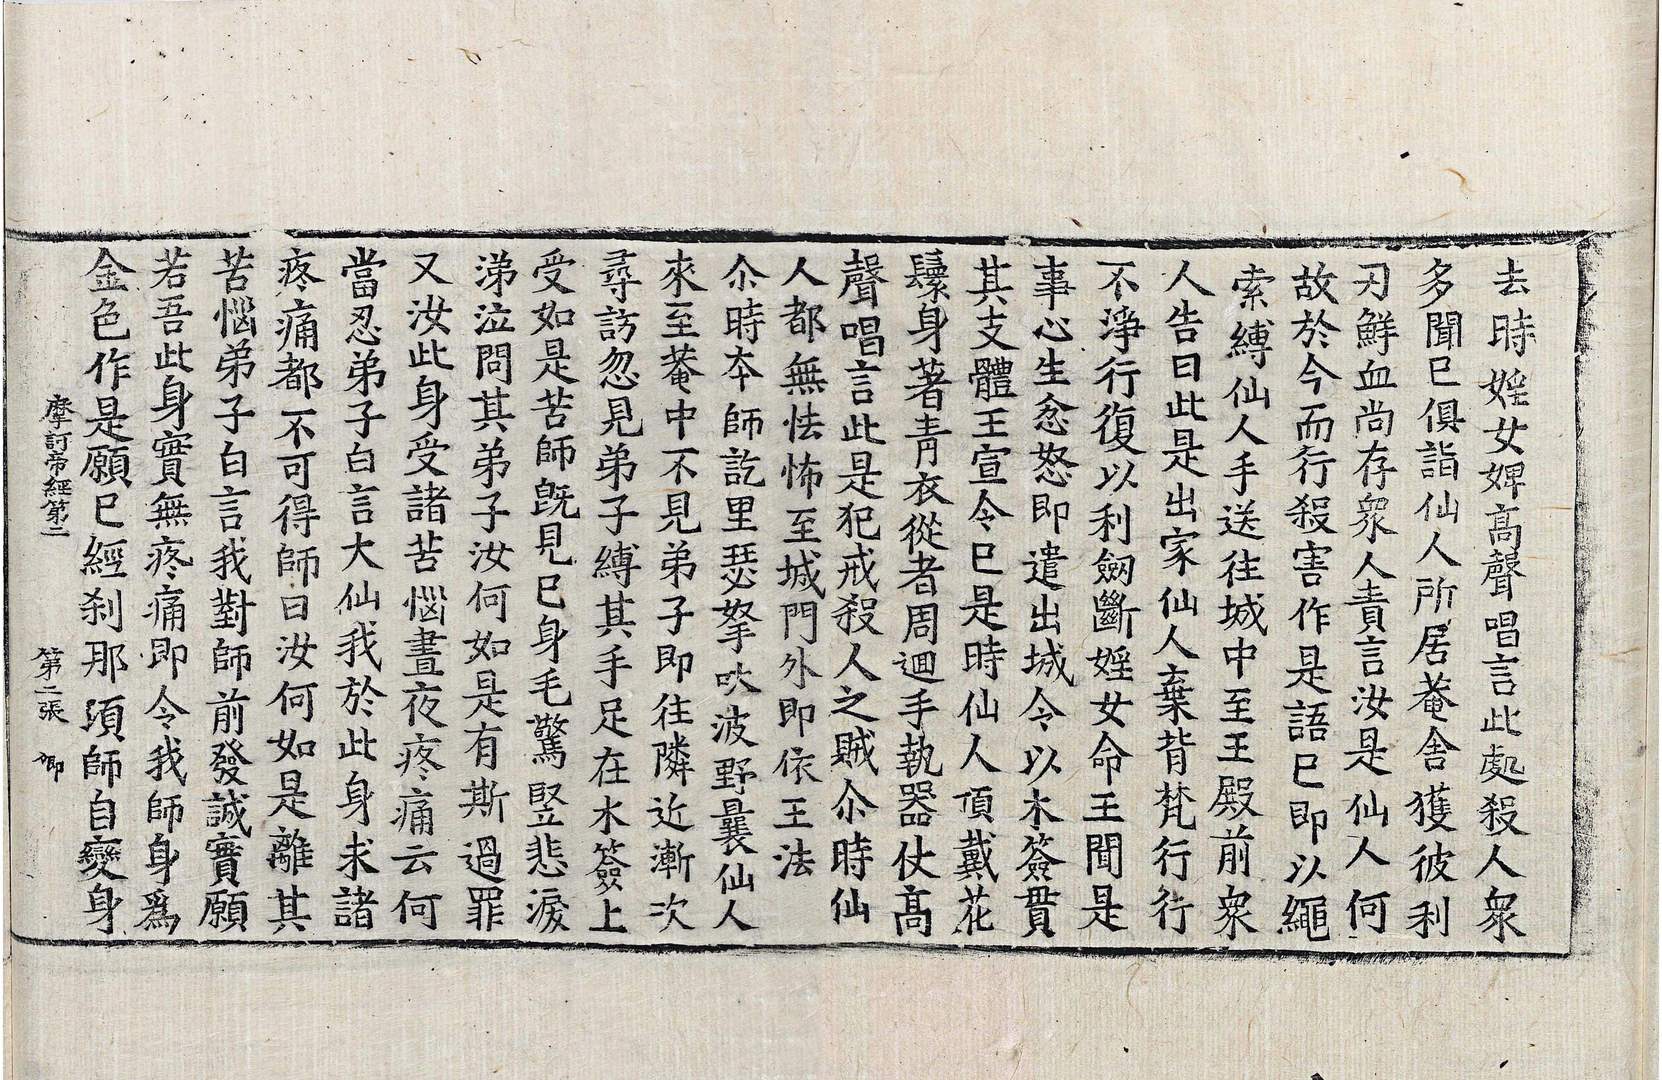 去時婬女婢高聲唱言此處殺人衆
多聞巳俱詣仙人所居菴舍獲彼利
刃鮮血尚存衆人責言汝是仙人何
故於今而行殺害作是語巳即以繩
索縛仙人手送往城中至王殿前衆
人告曰此是出家仙人棄背梵行行
不淨行復以利劒斷婬女命王聞是
事心生忿怒即遣出城令以木簽貫
其支體王宣令巳是時仙人頂戴花
鬘身著青衣從者周迴手執器仗高
聲唱言此是犯戒殺人之賊尒時仙
人都無怯怖至城門外即依王法
尒時本師訖里瑟拏吠波野曩仙人
來至菴中不見弟子即往隣近漸次
尋訪忽見弟子縛其手足在木簽上
受如是苦師旣見巳身毛驚竪悲淚
涕泣問其弟子汝何如是有斯過罪
又汝此身受諸苦惱晝夜疼痛云何
當忍弟子白言大仙我於此身求諸
疼痛都不可得師曰汝何如是離其
苦惱弟子白言我對師前發誠實願
若吾此身實無疼痛即令我師身爲
金色作是願巳經刹那頃師自變身
摩訶帝經第二 第二張 卿